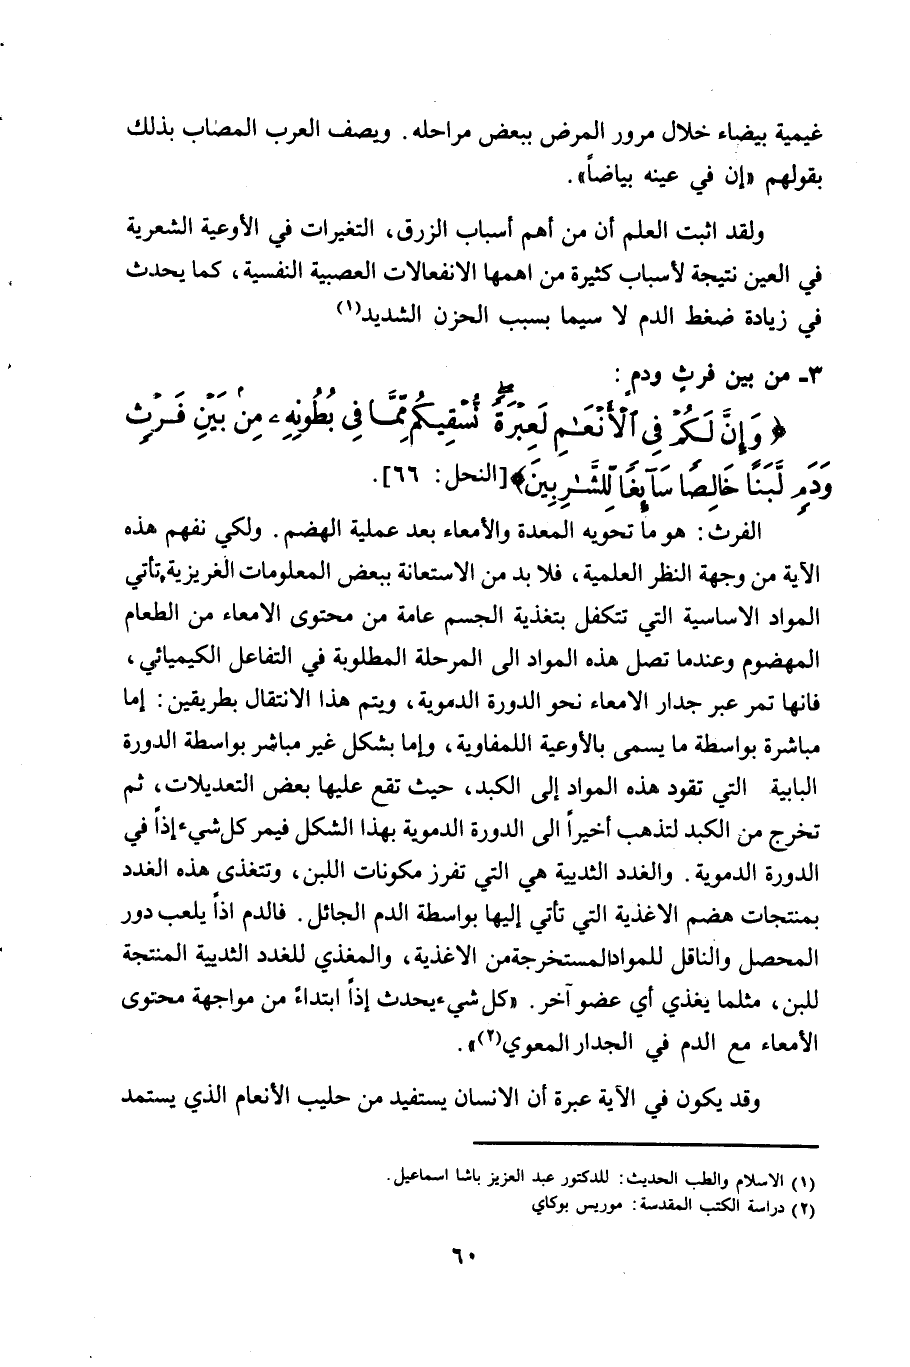 غيمية بيضاء خلال مرور المرض ببعض مراحله. ويصف العرب المصاب بذلك
بقولهم «إن في عينه بياضاً».
ولقد اثبت العلم أن من أهم أسباب الزرق، التغيرات في الأوعية الشعرية
في العين نتيجة لأسباب كثيرة من اهمها الانفعالات العصبية النفسية، كما يحدث
في زيادة ضغط الدم لا سيما بسبب الحزن الشديد(١)
٣ـ من بين فرثٍ ودمٍ:
﴿ وَإِنَّ لَكُمْ فِى ٱلْأَنْعَـٰمِ لَعِبْرَةً ۖ نُّسْقِيكُم مِّمَّا فِى بُطُونِهِۦ مِنۢ بَيْنِ فَرْثٍ
وَدَمٍ لَّبَنًا خَالِصًا سَآئِغًا لِّلشَّـٰرِبِينَ﴾[النحل: ٦٦].
الفرث: هو ما تحويه المعدة والأمعاء بعد عملية الهضم. ولكي نفهم هذه
الآية من وجهة النظر العلمية، فلا بد من الاستعانة ببعض المعلومات الغريزية،تأتي
المواد الاساسية التي تتكفل بتغذية الجسم عامة من محتوى الامعاء من الطعام
المهضوم وعندما تصل هذه المواد الى المرحلة المطلوبة في التفاعل الكيميائي،
فانها تمر عبر جدار الامعاء نحو الدورة الدموية، ويتم هذا الانتقال بطريقين: إما
مباشرة بواسطة ما يسمى بالأوعية اللمفاوية، وإما بشكل غير مباشر بواسطة الدورة
البابية التي تقود هذه المواد إلى الكبد، حيث تقع عليها بعض التعديلات، ثم
تخرج من الكبد لتذهب أخيراً الى الدورة الدموية بهذا الشكل فيمر كل شيء إذاً في
الدورة الدموية. والغدد الثديية هي التي تفرز مكونات اللبن، وتتغذى هذه الغدد
بمنتجات هضم الاغذية التي تأتي إليها بواسطة الدم الجائل. فالدم اذاً يلعب دور
المحصل والناقل للموادالمستخرجةمن الاغذية، والمغذي للغدد الثديية المنتجة
للبن، مثلما يغذي أي عضو آخر. «كل شيء يحدث إذاً ابتداءً من مواجهة محتوى
الأمعاء مع الدم في الجدار المعوي(٢)».
وقد يكون في الآية عبرة أن الانسان يستفيد من حليب الأنعام الذي يستمد
(١) الاسلام والطب الحديث: للدكتور عبد العزيز باشا اسماعيل.
(٢) دراسة الكتب المقدسة: موريس بوكاي
٦٠